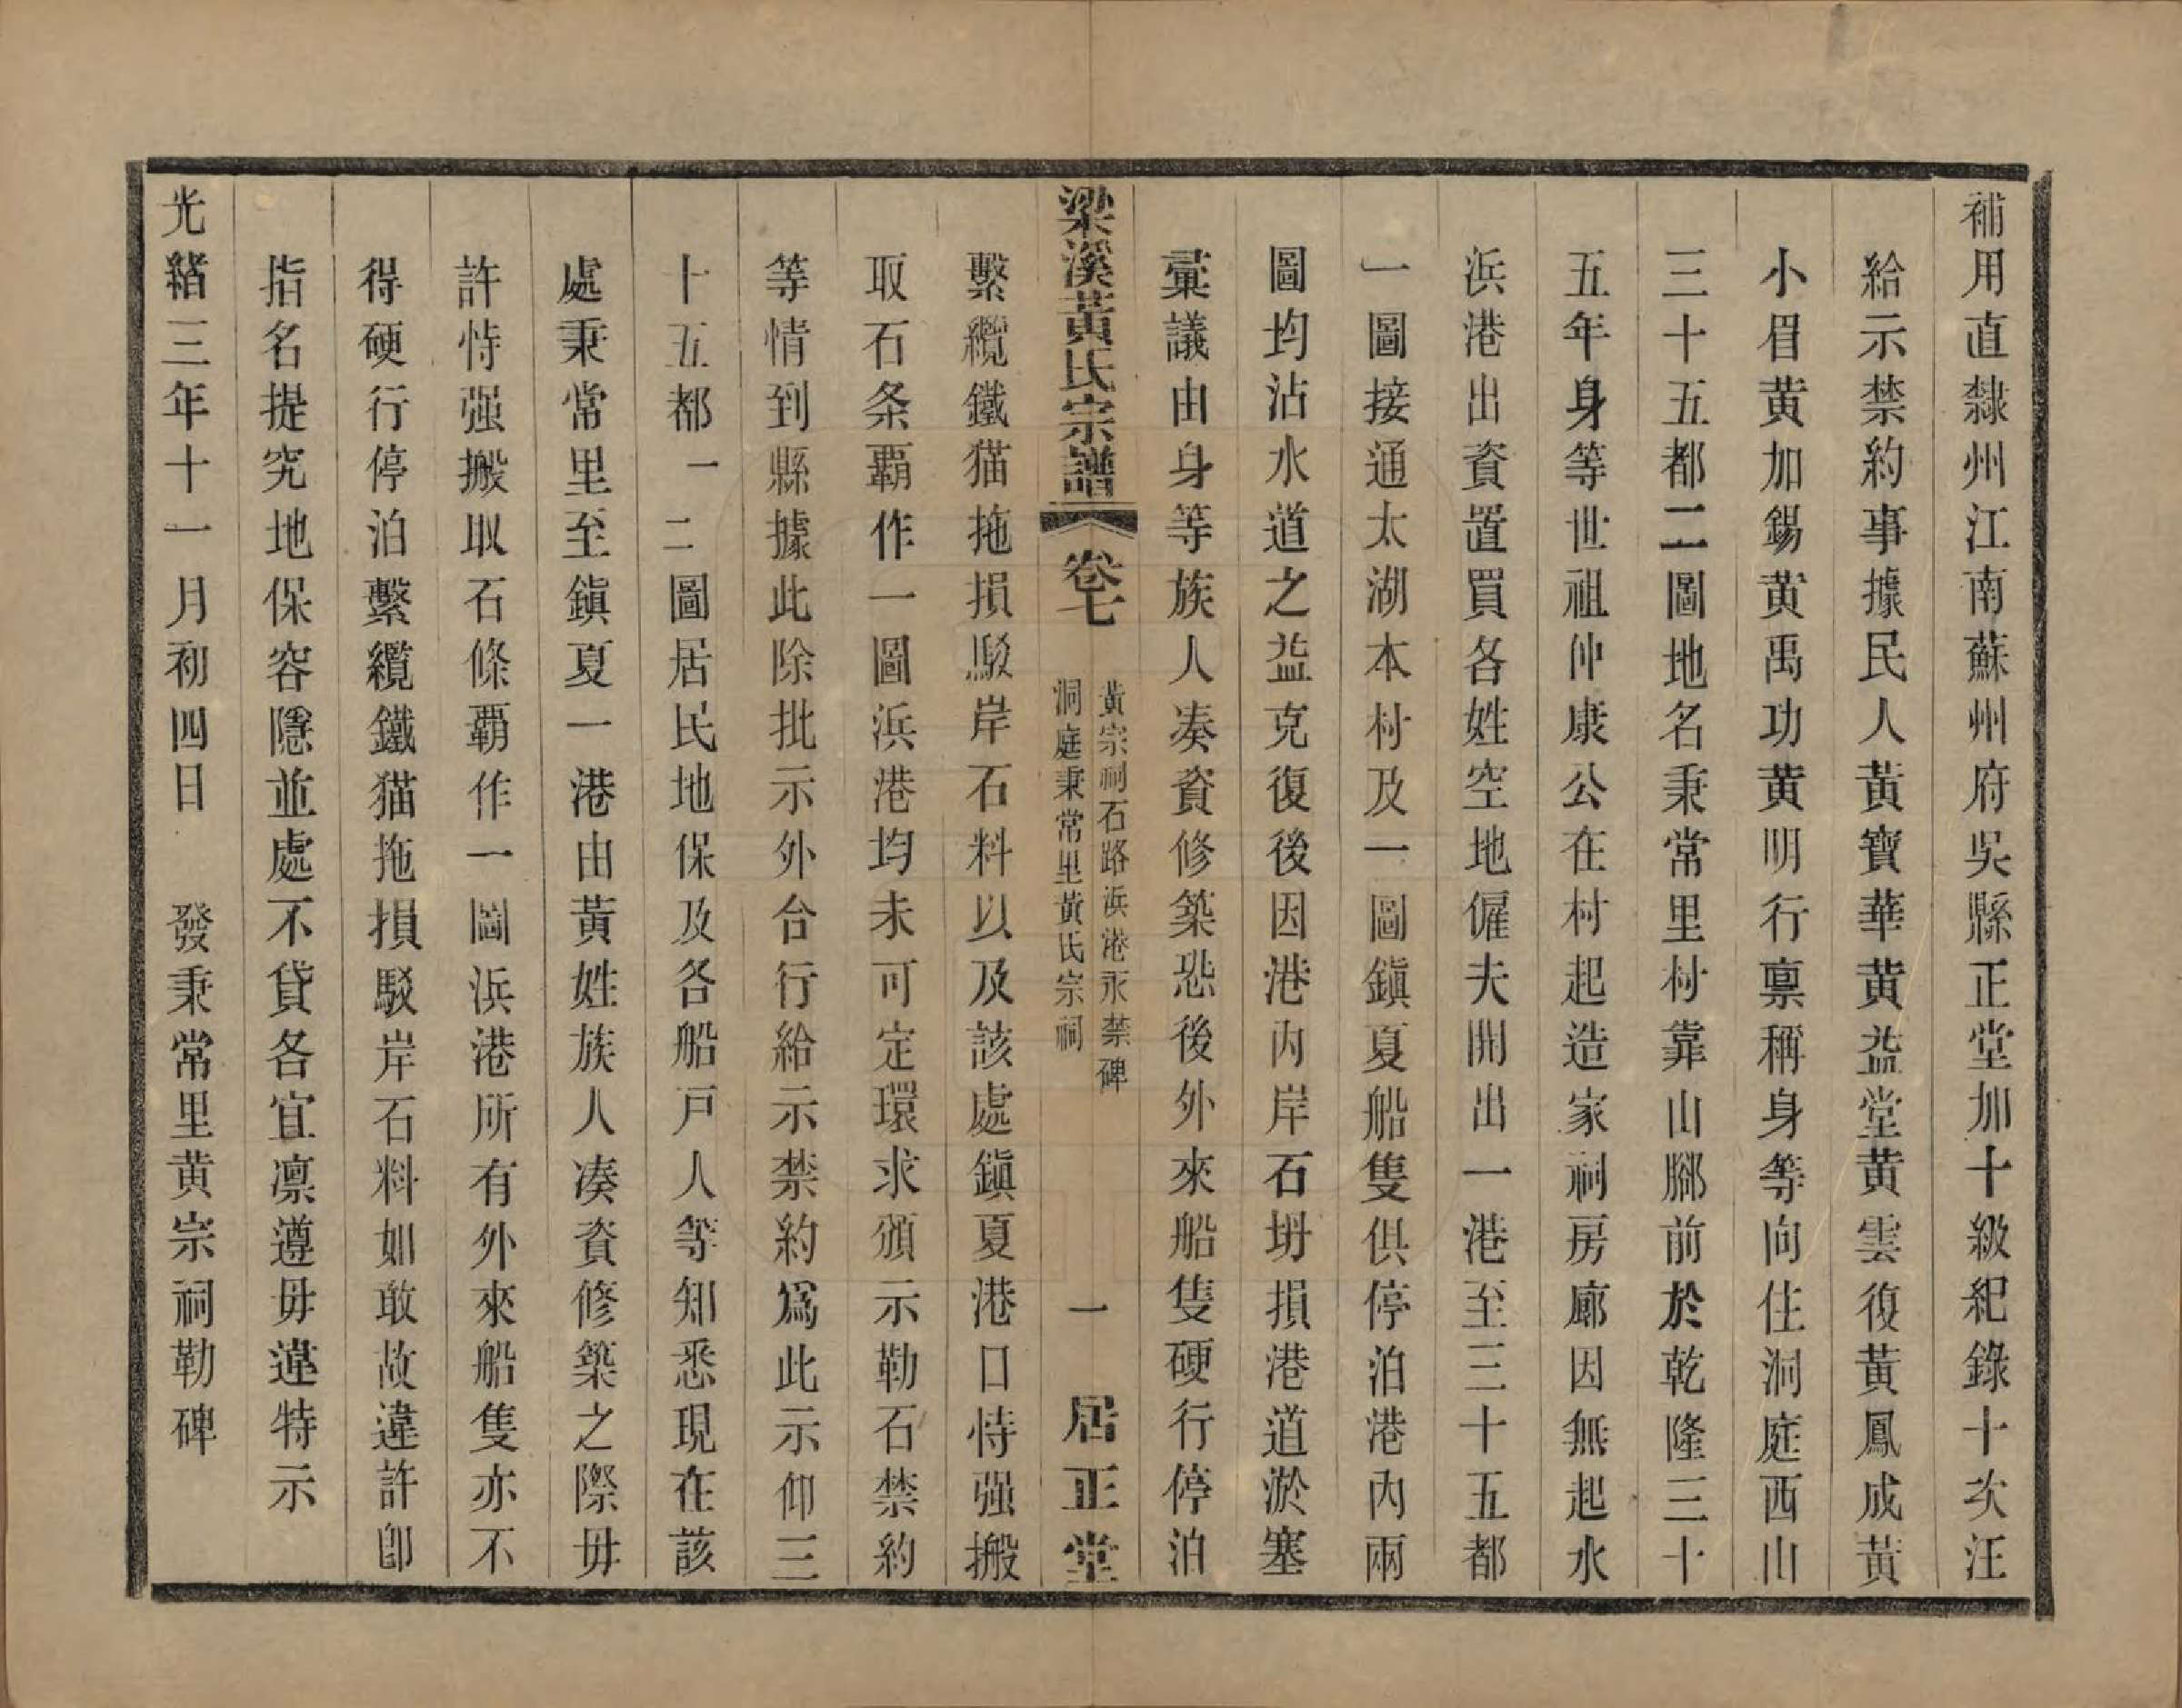 補用直隸州江南蘇州府吳縣正堂加十級紀錄十次汪
給示禁約事據民人黃寶華黃益堂黃雲復黃鳳成黃
小眉黃加錫黃禹功黃明行禀稱身等向住洞庭西山
三十五都二圖地名秉常里村靠山腳前於乾隆三十
五年身等世祖仲康公在村起造家祠房廊因無起水
浜港出資置買各姓空地僱夫開出一港至三十五都
一圖接通太湖本村及一圖鎭夏船隻俱停泊港內兩
圖均沾水道之益克復後因港內岸石坍損港道淤塞
彙議由身等族人凑資修築恐後外來船隻硬行停泊
梁溪黃氏宗譜 卷七 黃宗祠石路浜港永禁碑 洞庭秉常里黃氏宗祠 一 居正堂
繫纜鐵猫拖損駁岸石料以及該處鎭夏港口恃强搬
取石条覇作一圖浜港均未可定環求頒示勒石禁約
等情到縣據此除批示外合行給示禁約爲此示仰三
十五都一二圖居民地保及各船戶人等知悉現在該
處秉常里至鎭夏一港由黃姓族人凑資修築之際毋
許恃强搬取石條覇作一圖浜港所有外來船隻亦不
得硬行停泊繫纜鐵猫拖損駁岸石料如敢故違許卽
指名提究地保容隱並處不貸各宜凛遵毋違特示
光緒三年十一月初四日 發秉常里黃宗祠勒碑